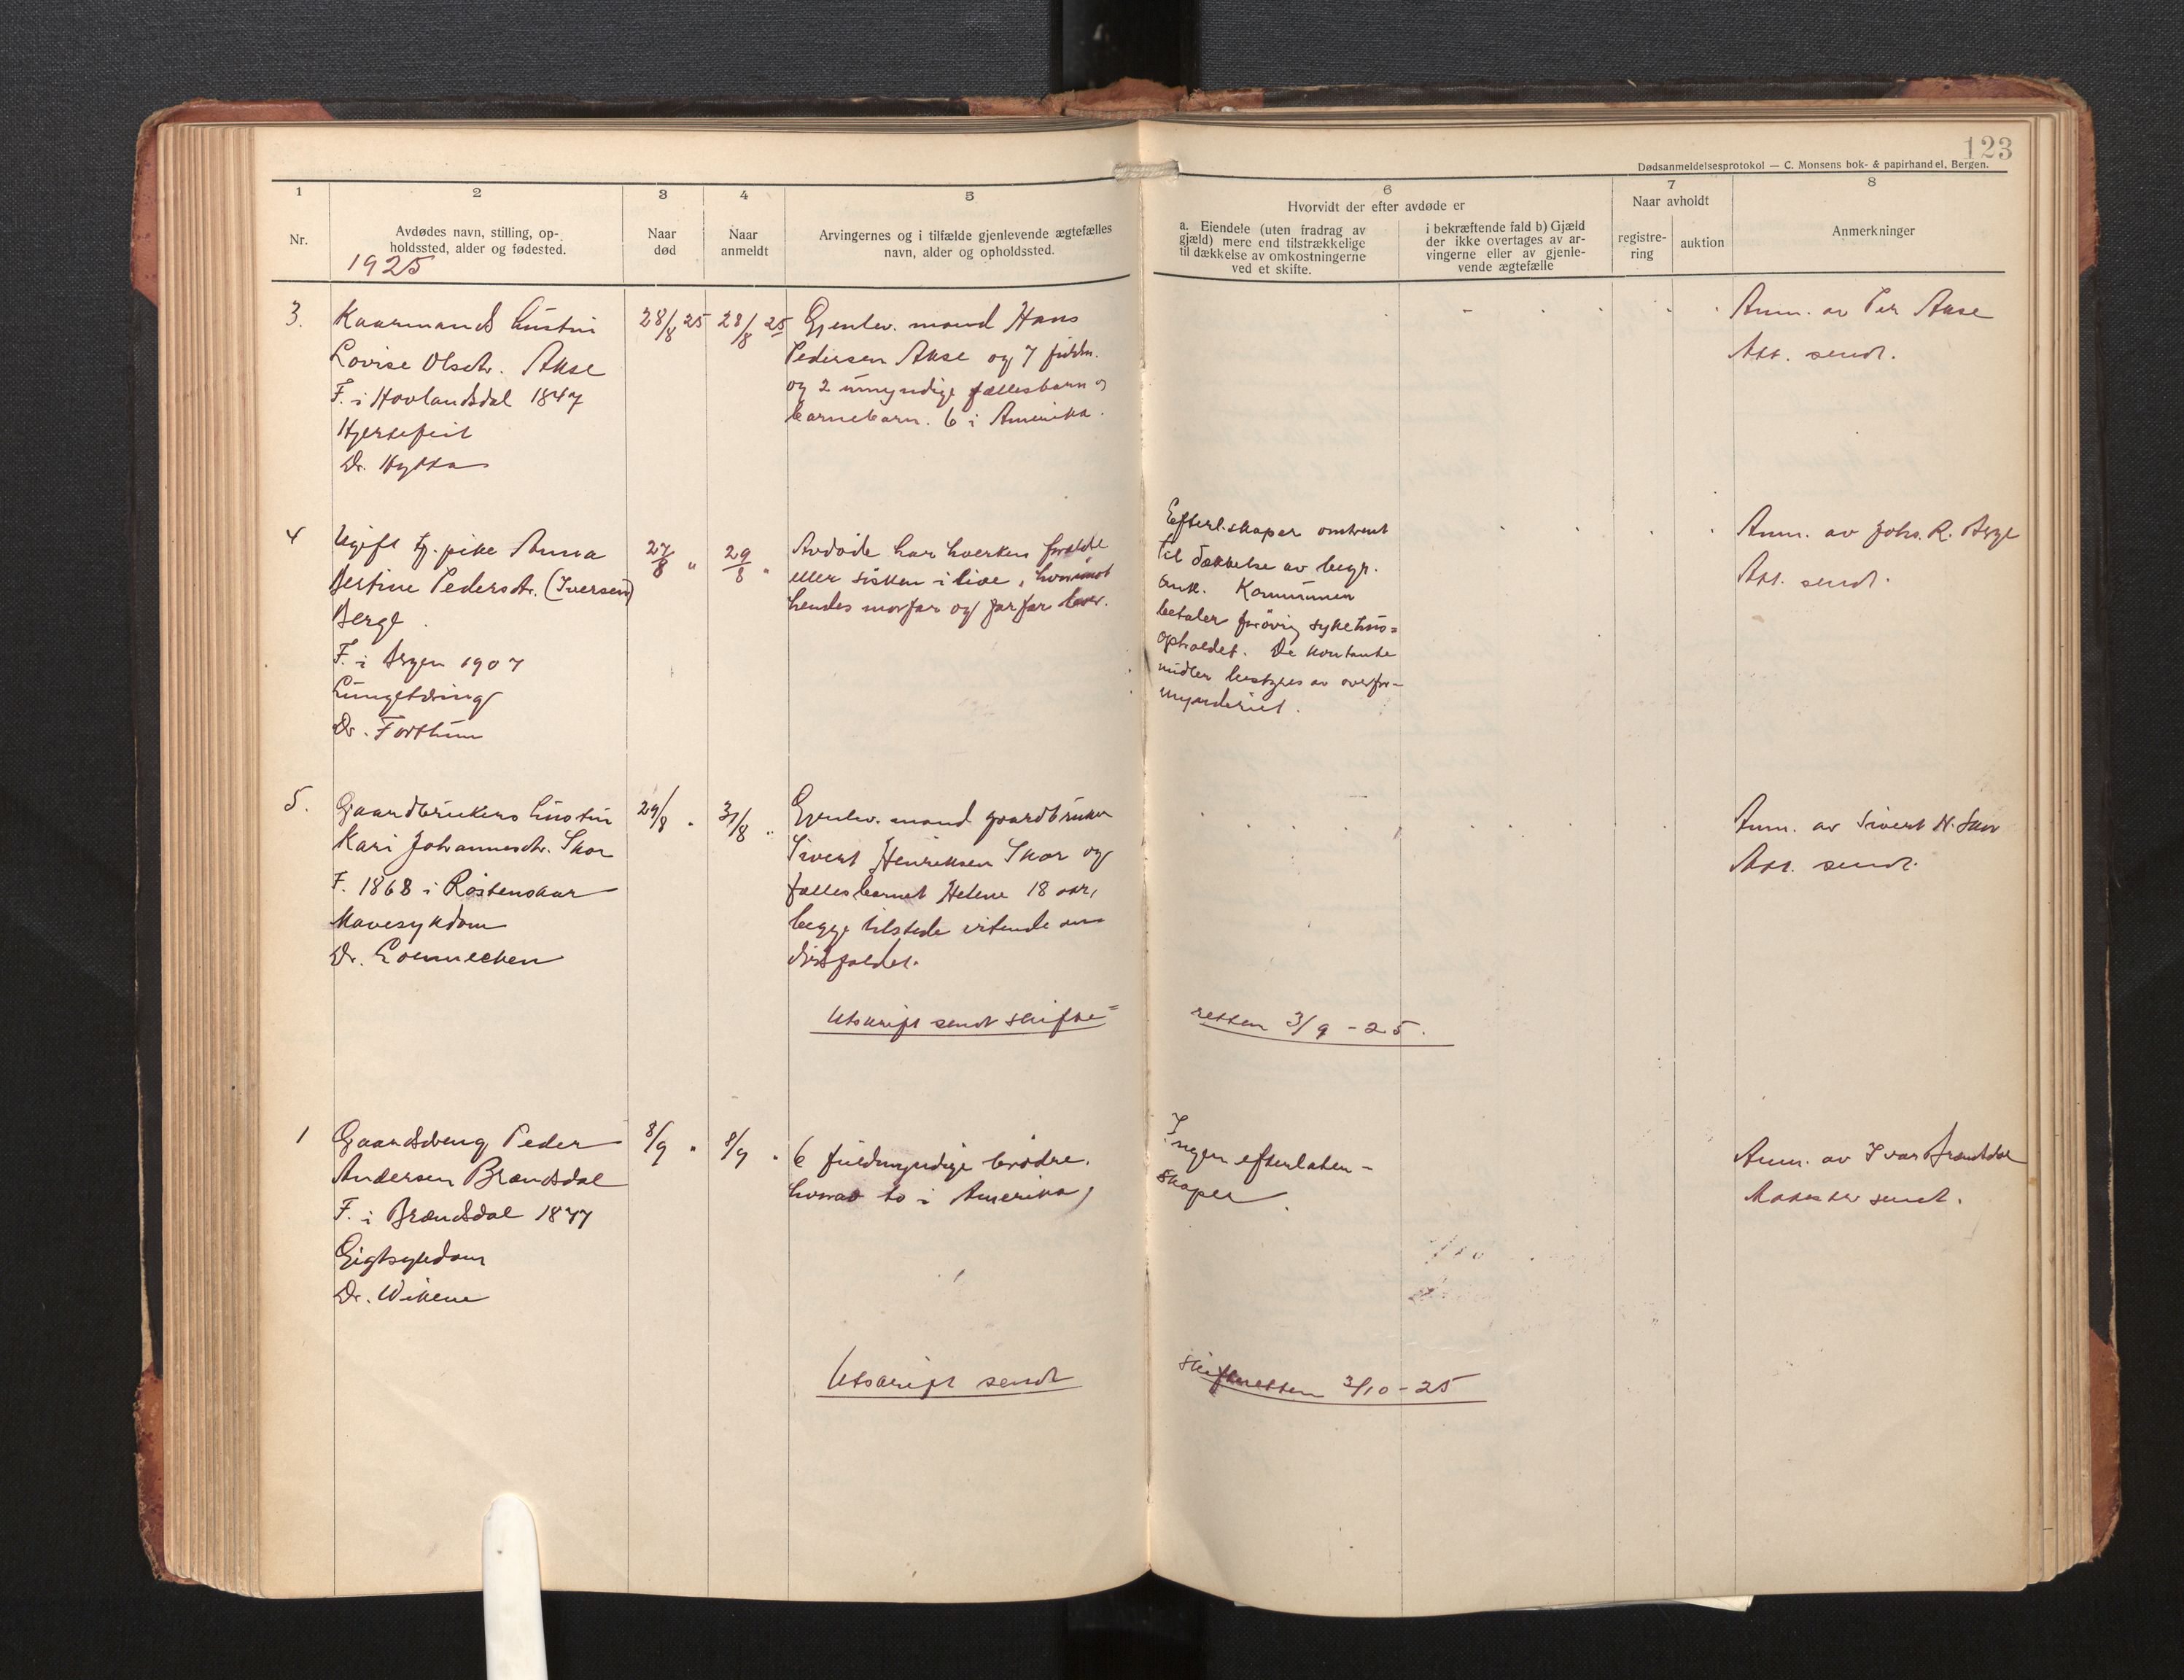 123
Dødsanmeldelsesprotokol — C. Monsens bok- & papirhandel, Bergen.
1
2
3
4
5
6
7
8
Nr.
Avdødes navn, stilling, op-
holdssted, alder og fødested.
1925
Naar
død
Naar
anmeldt
Arvingernes og i tilfælde gjenlevende ægtefælles
navn, alder og opholdssted.
Hvorvidt der efter avdøde er
a. Eiendele (uten fradrag av
gjæld) mere end tilstrækkelige
til dækkelse av omkostningerne
ved et skifte.
i bekræftende fald b) Gjæld
der ikke overtages av ar-
vingerne eller av gjenle-
vende ægtefælle
Naar avholdt
registre-
ring
auktion
Anmerkninger
3.
Kaarmands hustru
Lovise Olsdtr. Akse
F. i Hovlandsdal 1847
Hjertefeil
Dr. Hytta
28/8 25
28/8 25
Gjenlev. mand Hans
Pedersen Akse og 7 fuldm.
og 2 umyndige fællesbarn og
barnebarn. 6 i Amerika.
Anm. av Per Akse
Att. sendt.
4
Ugift tj. pike Anna
Bertine Pedersdtr. (Iversen)
Berge.
F. i Bergen 1907
Lungetæring
Dr. Forthun
27/8 "
29/8 "
Avdøde har hverken forældre
eller sisken i live, hvorimot
hendes morfar og farfar lever.
Efterl.skaper omtrent
til dækkelse av begr.
omk. Kommunen
betaler forøvrig sykehus=
opholdet. De kontante
midler bestyres av overfor-
mynderiet.
Anm. av Johs. R. Berge
Att. sendt.
5.
Gaardbrukers hustru
Kari Johannesdtr. Skor
F. 1868 i
Mavesykdom
Dr. Loennecken
29/8 "
31/8 "
Gjenlev. mand gaardbruker
Sivert Henriksen Skor og
fællesbarnet Helene 18 aar,
begge tilstede vitende om
dødsfaldet.
Utskrift sendt skifte=
retten 3/9 - 25.
Anm. av Sivert H. Skor
Att. sendt.
1
Gaardsdreng Peder
Andersen Brændsdal
F. i Brændsdal 1877
Gigtsykdom
Dr. Wikene
8/9 "
8/9 "
6 fuldmyndige brødre.
hvorav to i Amerika,
Ingen efterlaten-
skaper.
Anm. av Ivar Brændsdal
sendt.
Utskrift sendt
skifteretten 3/10 - 25